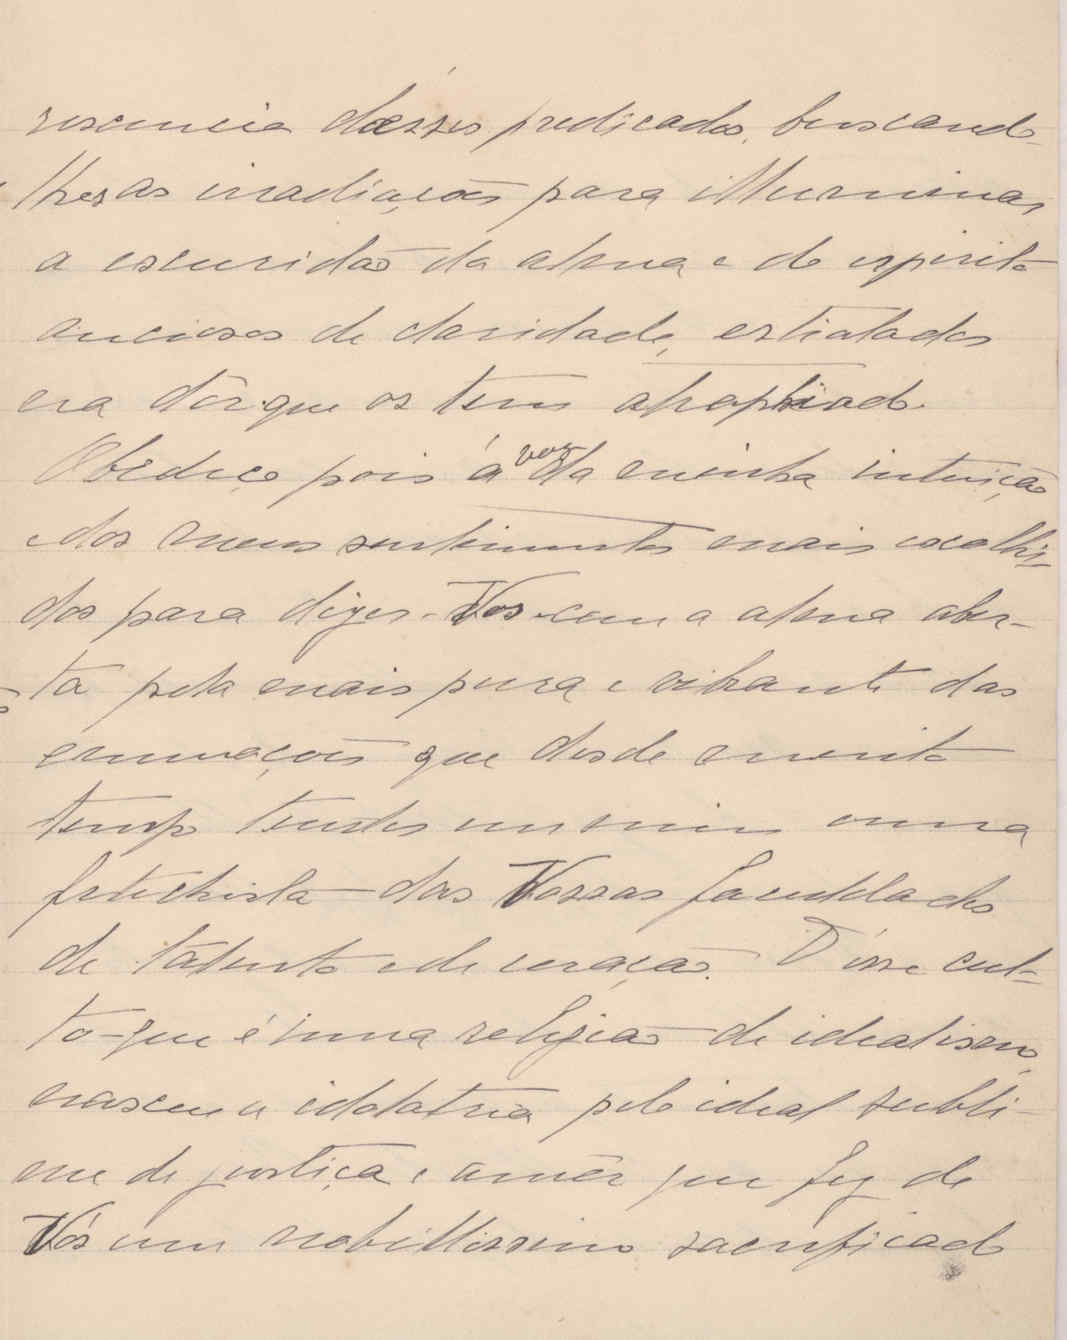 rescencia dessses predicados, buscando-
lhes as irradiações para illuminar
a escuridão da alma e do espirito
anciosos de claridade, estiolados
na dôr que os tem
Obedeço pois á voz da minha intuição
e dos meus sentimentos mais escolhi-
dos para dizer-Vos com a alma aber-
ta pela mais pura e vibrante das
emoções que desde muito
tempo tendes em mim uma
fetichista das Vossas faculdades
de talento e de coração. D'esse cul-
to-que é uma religião de idealismo,
nasceu a idolatria pelo ideal subli-
me de justiça e amôr que fez de
Vós um nobillissimo sacrificado